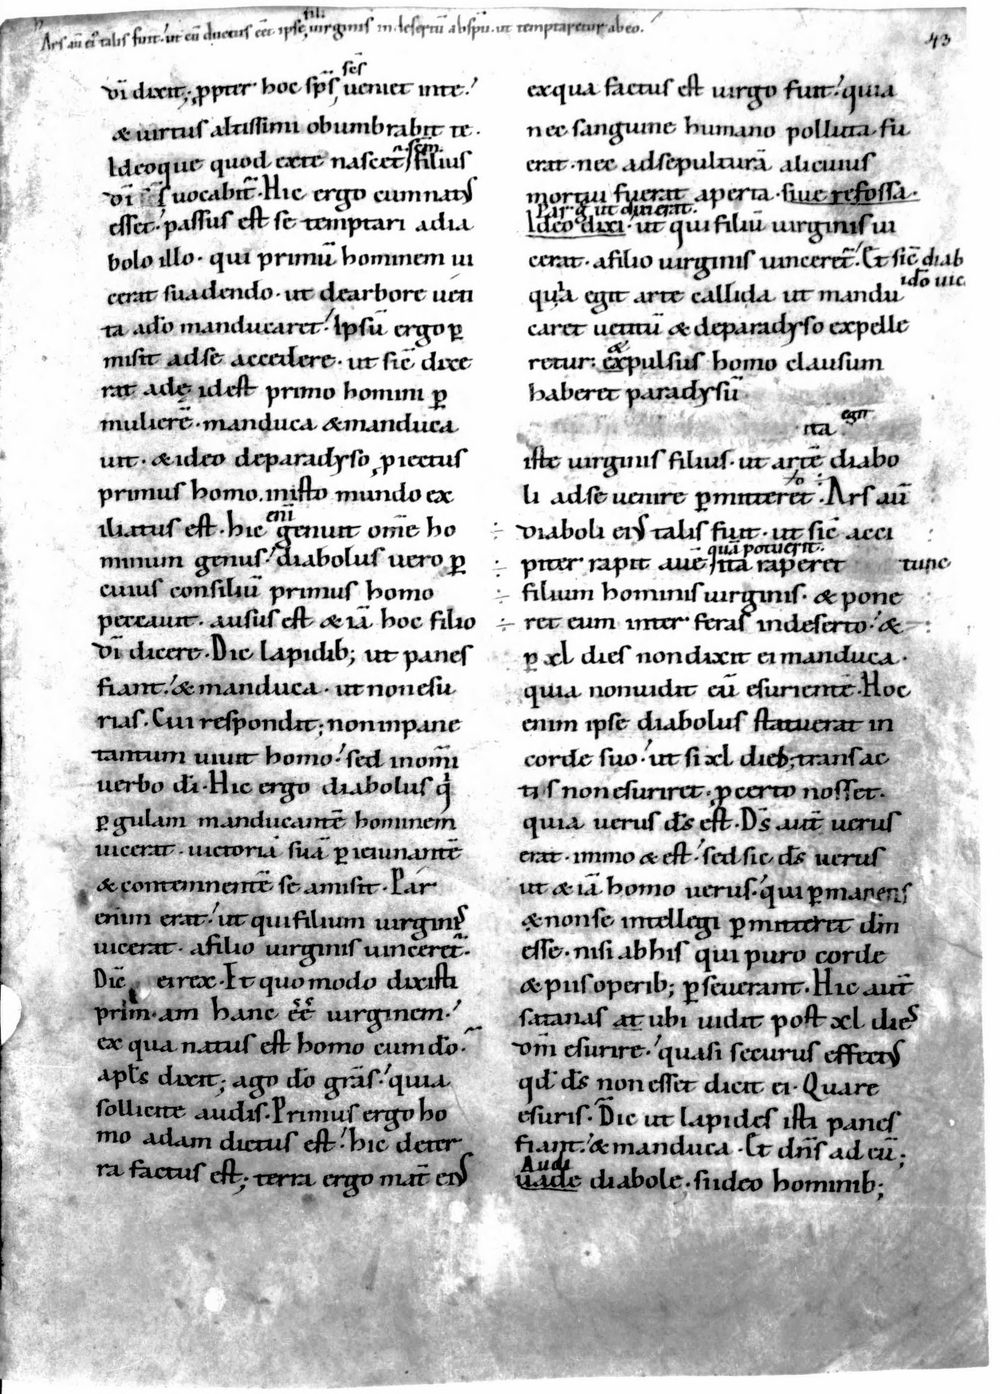 Ars aū ei᷒ talis fuit. ut cū ductus eēt ipse fili᷒ uirginis in desertū abspū. ut temptaretur abeo.
43
dī dixit; ꝓpter hoc spˢ scs ueniet inte.
& uirtus altissimi obumbrabit te.
Ideoque quod exte nascet̄ scm̄ filius
dī uocabit̄. Hic ergo cum nat᷒
esset. passus est se temptari adia
bolo illo. qui primū hominem ui
cerat suadendo. ut dearbore ueti
ta adō manducaret. Ipsū ergo ꝑ
misit adse accedere. ut sic̄ dixe
rat adę idest primo homini ꝑ
mulierē. manduca &manduca
uit. &ideo deparadyso ꝓiectus
primus homo. inisto mundo ex
iliatus est. hic enī genuit om̄e ho
minum genus. diabolus uero ꝑ
cuius consiliū primus homo
peccauit. ausus est & iā hoc filio
dī dicere. Dic lapidib; ut panes
fiant. & manduca. ut nonesu
rias. Cui respondit; non inpane
tantum uiuit homo. sed inom̄i
uerbo dī. Hic ergo diabolus q̇
ꝑ gulam manducantē hominem
uicerat. uictoriā suā ꝑ ieiunantē
& contemnentē se amisit. Par
enim erat. ut qui filium uirginis
uicerat. afilio uirginis uinceret̄.
Dic̄ ei rex. Et quomodo dixisti
prim am hanc eē uirginem.
ex qua natus est homo cum dō.
apls dixit; ago dō grās. quia
sollicite audis. Primus ergo ho
mo adam dictus est. hic deter
ra factus est; terra ergo mat̄ ei᷒
exqua factus est uirgo fuit. quia
nec sanguine humano polluta fu
erat. nec adsepulturā alicuius
mortui fuerat aperta. siue refossa.
Par g̊ ut dixerat.
Ideo dixi. ut qui filiū uirginis ui
cerat. afilio uirginis uinceret̄. Et sic̄ diab
quia egit arte callida ut mandu
idō uic
caret uetitū & deparadyso expelle
retur. & expulsus homo clausum
haberet paradysū
ita egit
iste uirginis filius. ut artē diabo
li adse uenire ꝑmitteret. Ars aū
diaboli ei᷒ talis fuit. ut sic̄ acci
piter rapit auē quā potuerit. ita raperet tunc
filium hominis uirginis. & pone
ret eum inter feras indeserto. &
ꝑ xl dies nondixit ei manduca.
quia nonuidit eū esurientē. Hoc
enim ipse diabolus statuerat in
corde suo. ut si xl dieb; transac
tis nonesuriret. ꝓ certo nosset.
quia uerus ds̄ est. Ds̄ aut̄ uerus
erat. immo & est. sed sic ds̄ uerus
ut & iā homo uerus. qui ꝑmanens
& nonse intellegi ꝑmitteret dm̄
esse. nisi abhis qui puro corde
& piis operib; ꝑseuerant. Hic aut̄
satanas at ubi uidit post xl dies
dm̄ esurire. quasi securus effect᷒
qd̄ ds̄ non esset dicit ei. Quare
esuris. Dic ut lapides isti panes
fiant. & manduca. Et dn̄s ad eū;
Audi
uade diabole. sudeo hominib;